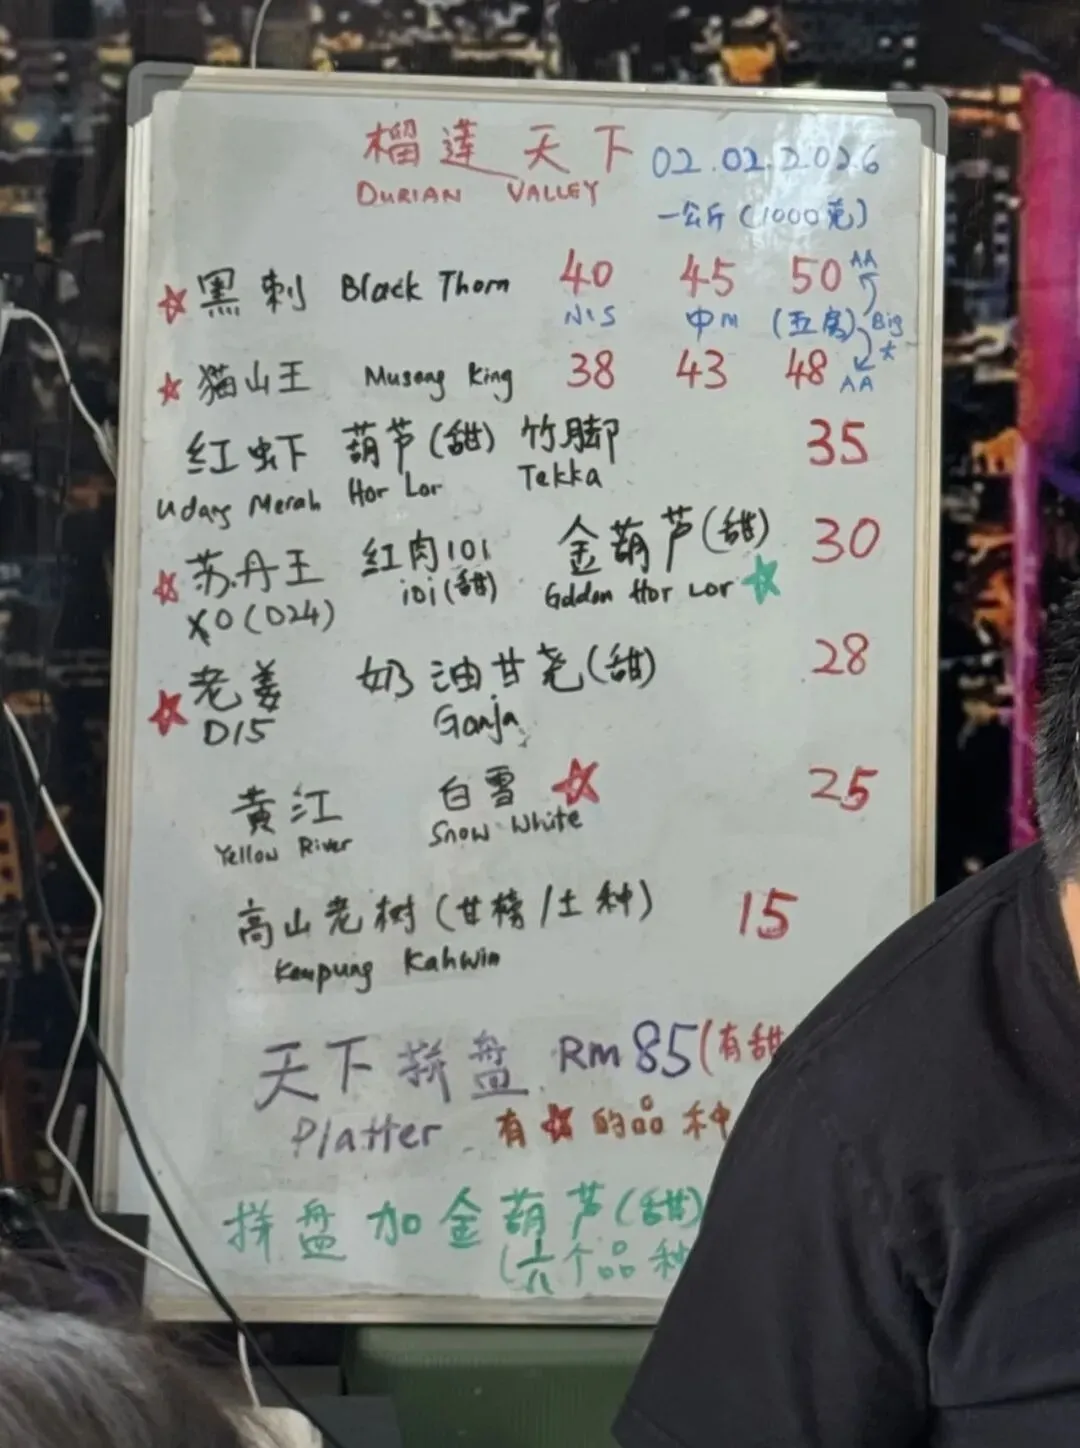 榴莲天下 02.02.2026
DURIAN VALLEY
一公斤 (1000克)
黑刺 Black Thorn 40 45 50 AA
小S 中M (五房) Big 大
猫山王 Musang King 38 43 48 AA
红虾 葫芦(甜) 竹脚 35
Udang Merah Hor Lor Tekka
苏丹王 红肉101 金葫芦(甜) 30
XO (D24) 101(甜) Golden Hor Lor
老姜 奶油甘尧(甜) 28
D15 Ganja
黄江 白雪 25
Yellow River Snow White
高山老树 (甘榜/土种) 15
Kampung Kahwin
天下拼盘 RM 85 (有甜
Platter 有☆的品种
拼盘加金葫芦(甜)
(六个品种